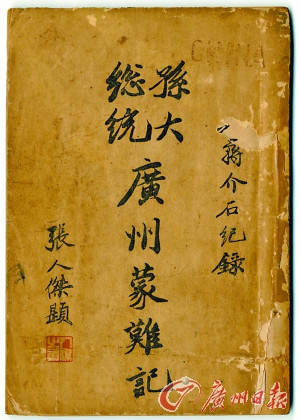 CHINA
蔣介石紀錄
孫大
總統
廣州蒙難記
張人傑題
廣州日报